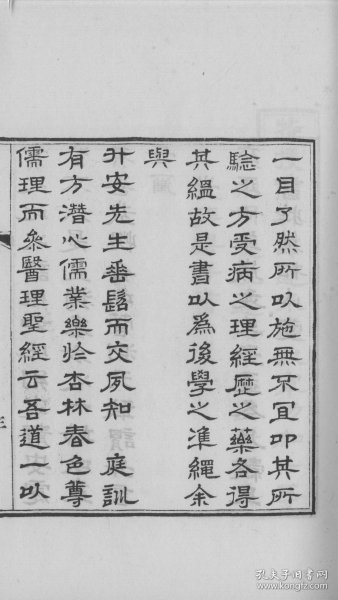 一目了然所以施無不宜叩其所
驗之方受病之理經歷之藥各得
其縕故是書以爲後學之準繩余
與
升安先生垂髫而交夙知 庭訓
有方潛心儒業樂於杏林春色尊
儒理而參醫理聖經云吾道一以
三
孔夫子旧书网